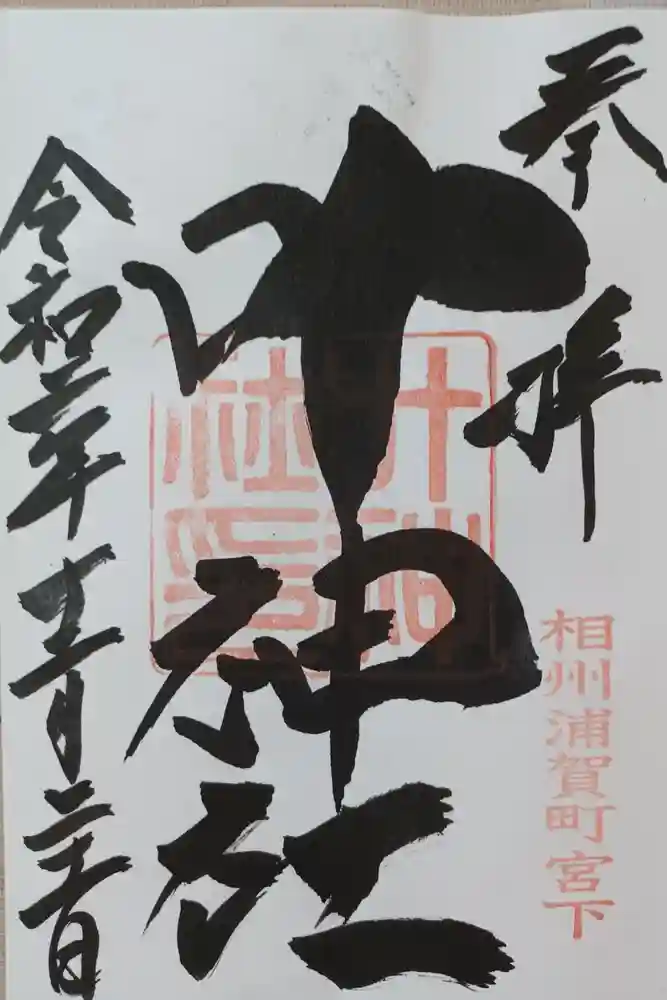 奉拝
叶神社
叶神社印
相州浦賀町宮下
令和二年十二月